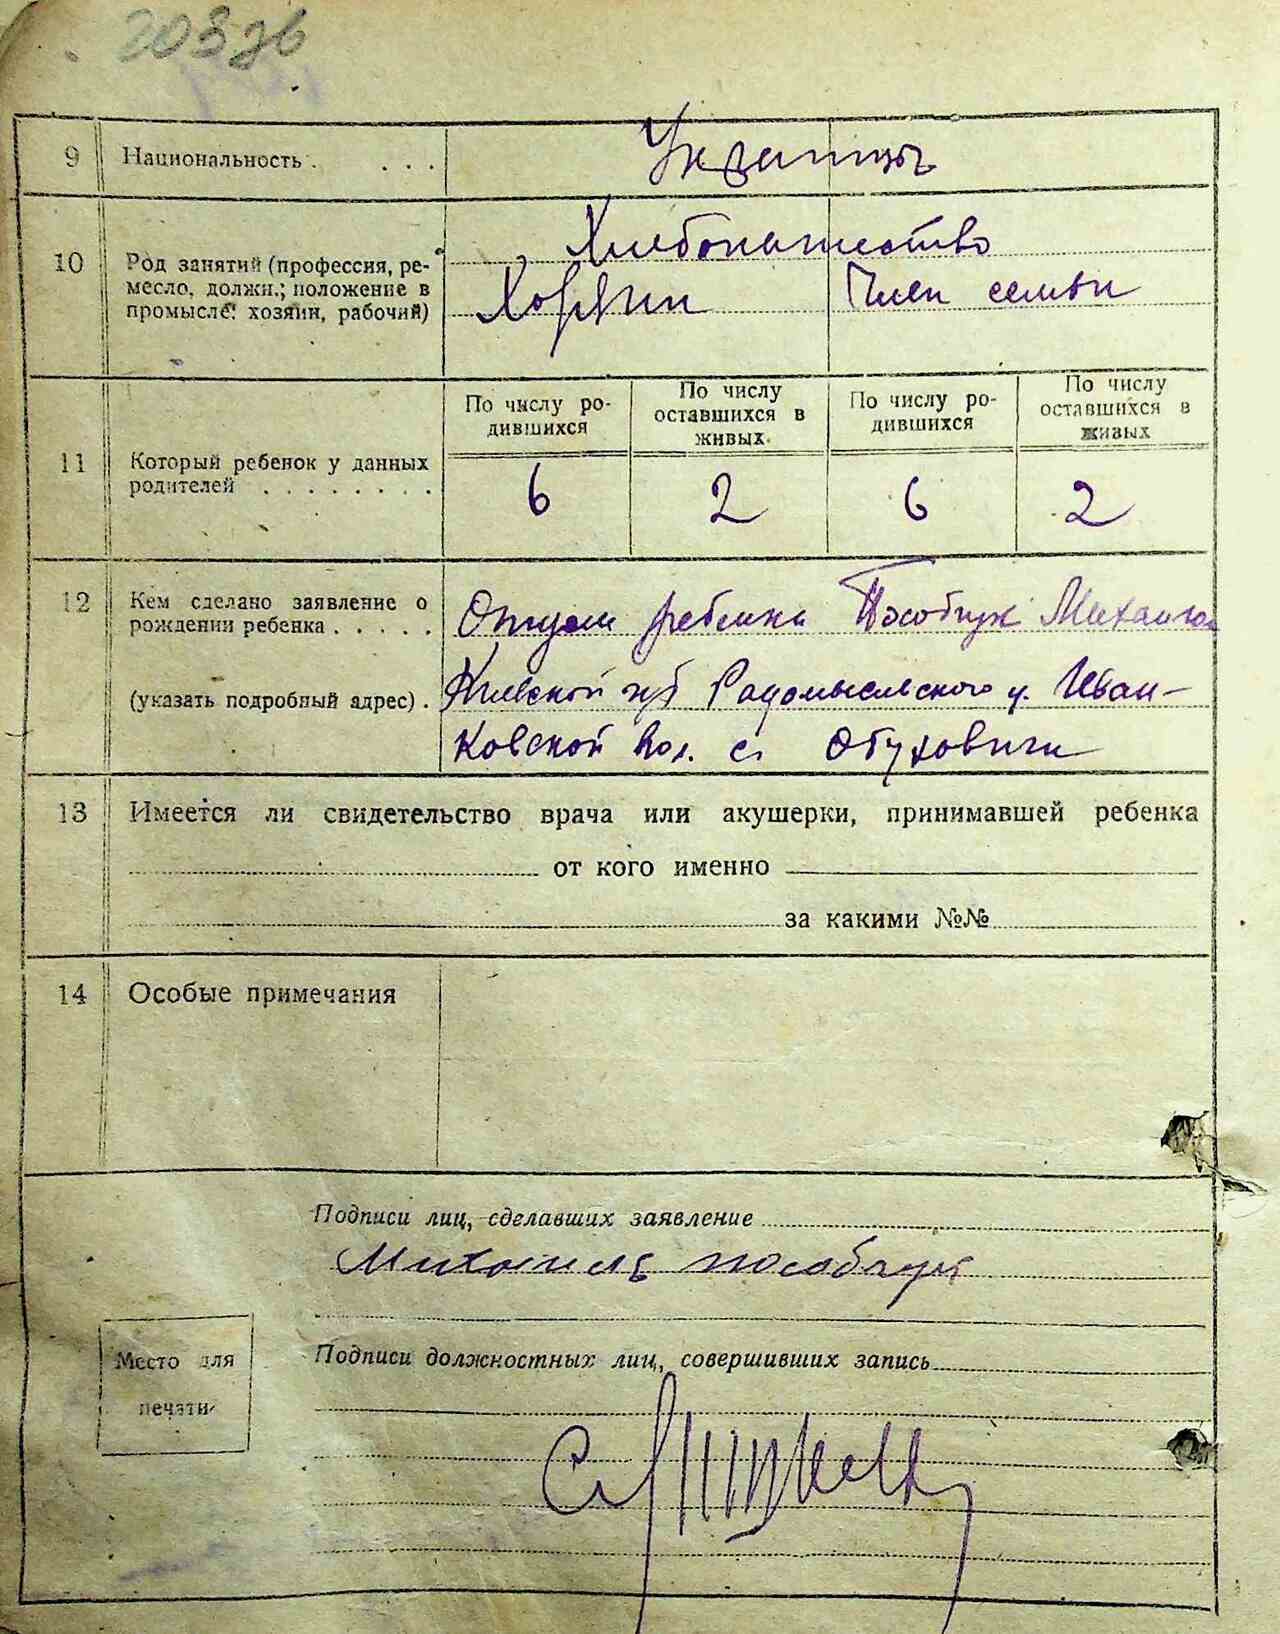 9 Национальность . . . . Украинцы
10 Род занятий (профессия, ре-
месло, должн.; положение в
промысле: хозяин, рабочий)
Хлебопашество
Хозяин Член семьи
11 Который ребенок у данных
родителей . . . . . . . .
По числу ро-
дившихся
По числу
оставшихся в
живых.
По числу ро-
дившихся
По числу
оставшихся в
живых
6 2 6 2
12 Кем сделано заявление о
рождении ребенка . . . . .
(указать подробный адрес) .
Отцем ребенка Михаил
Киевской губ Радомысельского у. Иван-
ковской вол. с. Обуховичи
13 Имеется ли свидетельство врача или акушерки, принимавшей ребенка
от кого именно
за какими №№
14 Особые примечания
Подписи лиц, сделавших заявление
Михаиль
Место для
печати
Подписи должностных лиц, совершивших запись